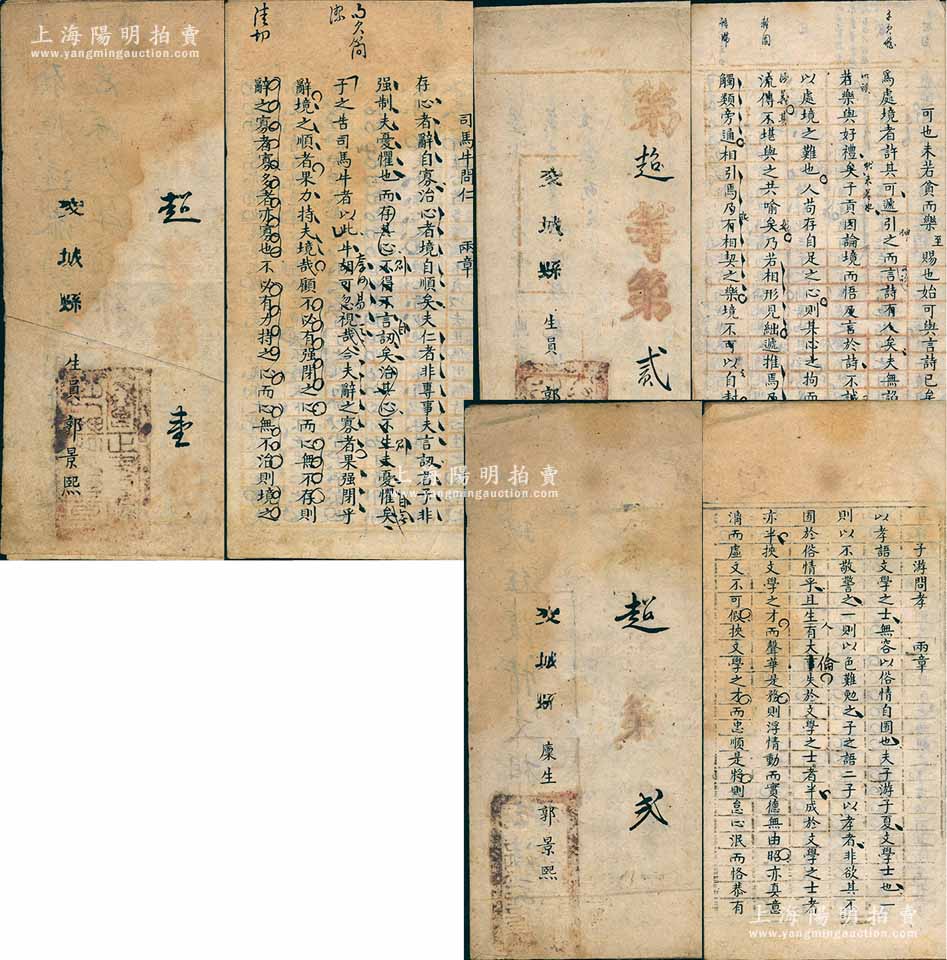 上海陽明拍賣
www.yangmingauction.com
超 壹
城縣 生員 郭景熙
司馬牛問仁 兩章
存心者辭自寡治心者境自順矣夫仁者非專事夫言訒君子非
强制夫憂懼也而存其心不得不言訒矣治其心不生夫憂懼矣
子之告司馬牛者以此牛胡可忽視哉今夫辭之寡者果强閉乎
辭境之順者果力持夫境哉顧不必有强閉之心而心無不存則
辭之寡者寡多者亦寡也不必有力持之心而心無不治則境之
上海陽明拍賣
www.yangmingauction.com
第超等第貳
城縣 生員 郭
可也未若貧而樂至賜也始可與言詩已矣
為處境者許其可遞引之而言詩有人矣夫無諂
若樂與好禮矣子貢因論境而悟及言於詩不誠
以處境之難也人苟存自足之心則其心之拘而
流傳不堪與之共喻矣乃若相形見絀遞推焉乃
觸類旁通相引焉乃有相契之樂境不可以自封
上海陽明拍賣
www.yangmingauction.com
超 第 貳
城縣 廩生 郭景熙
上海陽明拍賣
www.yangmingauction.com
子游問孝 兩章
以孝語文學之士無容以俗情自囿也夫子游子夏文學士也一
則以不敬警之一則以色難勉之子之語二子以孝者非欲其不
囿於俗情乎且生人有大倫失於文學之士者半成於文學之士者
亦半挾文學之才而聲華是務則浮情動而實德無由昭亦真意
漓而虛文不可假挾文學之才而忠順是將則怠心泯而恪恭有
上海陽明拍賣
www.yangmingauction.com